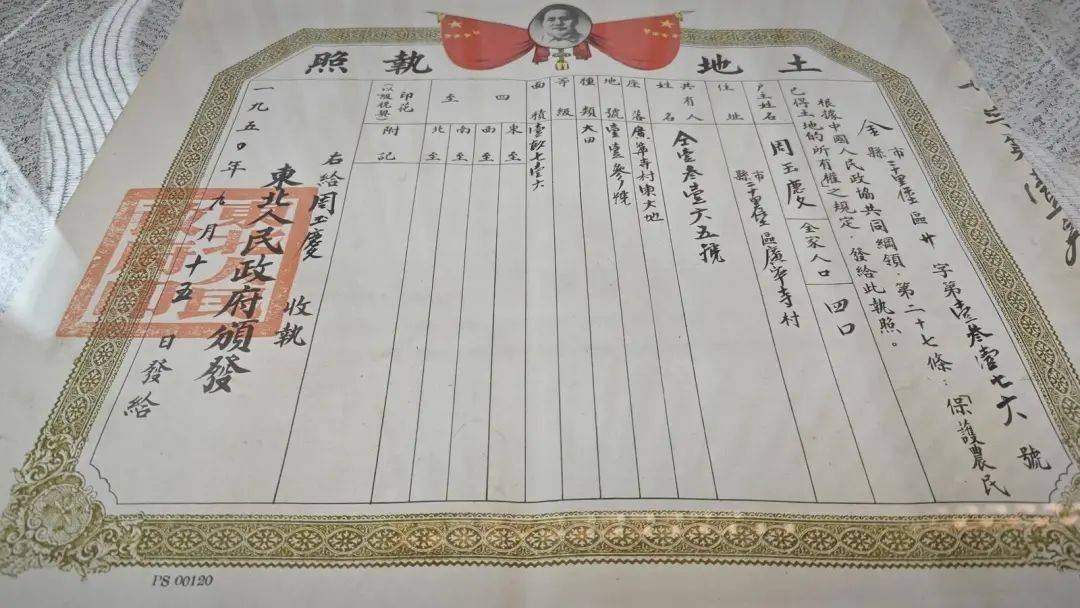 土地執照
金縣市二十里堡區廿字第壹叁壹七六號
根據中國人民政協共同綱領・第二十七條：「保護農民
已得土地的所有權」之規定・發給此執照。
戶主姓名 周玉慶 全家人口 四口
住址 市縣二十里堡區廣寧寺村
共有人姓名 仝壹叁壹六五號
座落 廣寧寺村東大地
地號
種類 大田
等級
面積 壹畝七壹六
四至
東至
西至
南至
北至
印花
附記
右給周玉慶收執
東北人民政府頒發
一九五〇年九月十五日發給
PS 00120